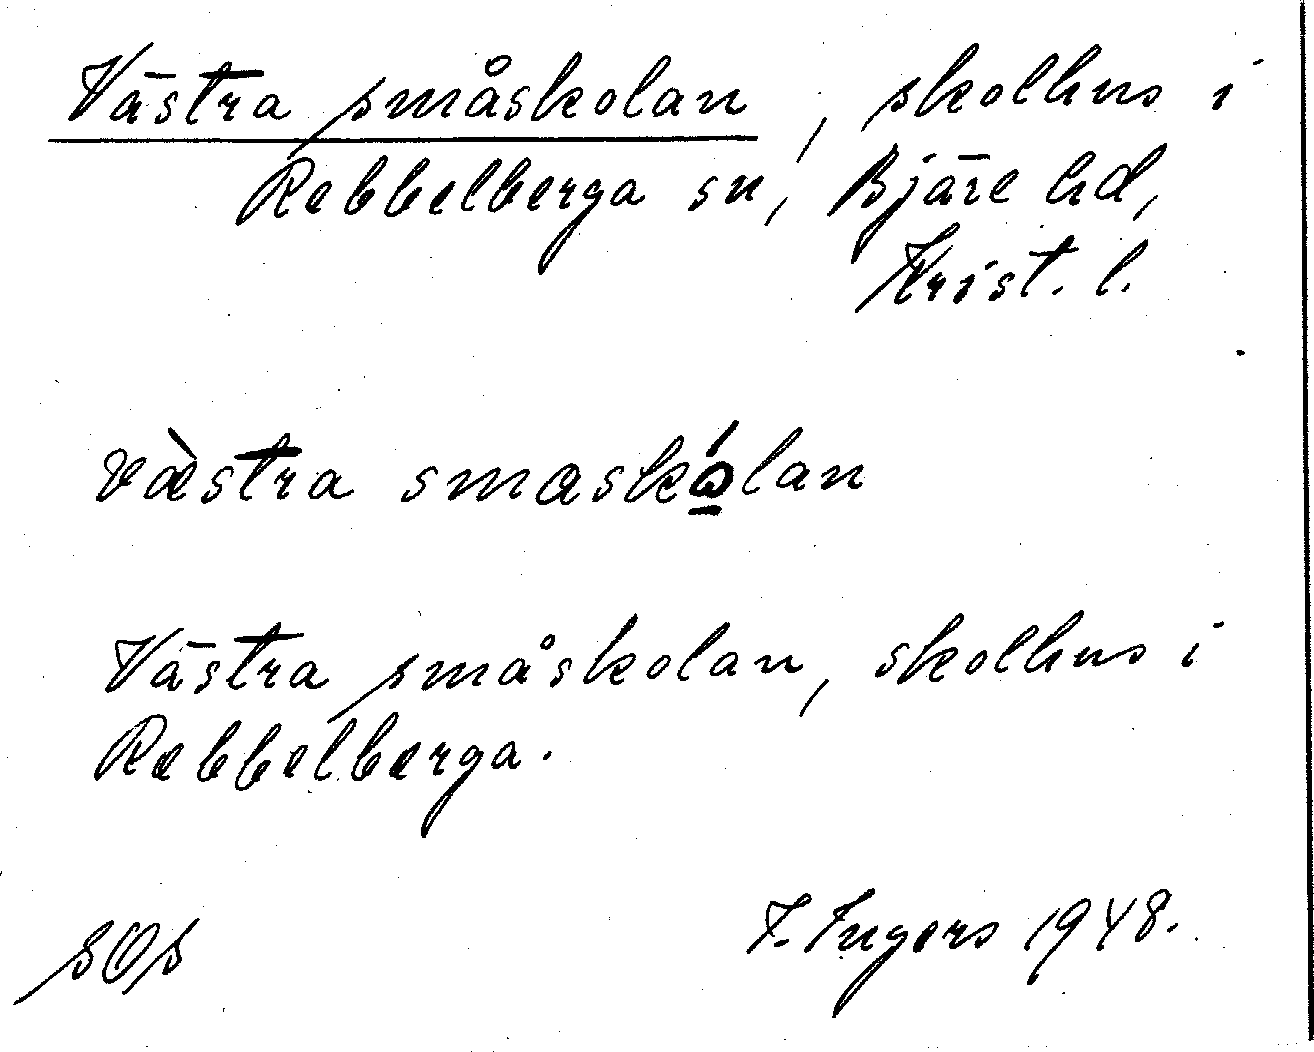 Västra småskolan, skolhus i
Rebbelberga sn, Bjäre hd,
Krist. l.
væ̀stra smaskó̱lan
Västra småskolan, skolhus i
Rebbelberga.
SOS
I. Ingers 1948.